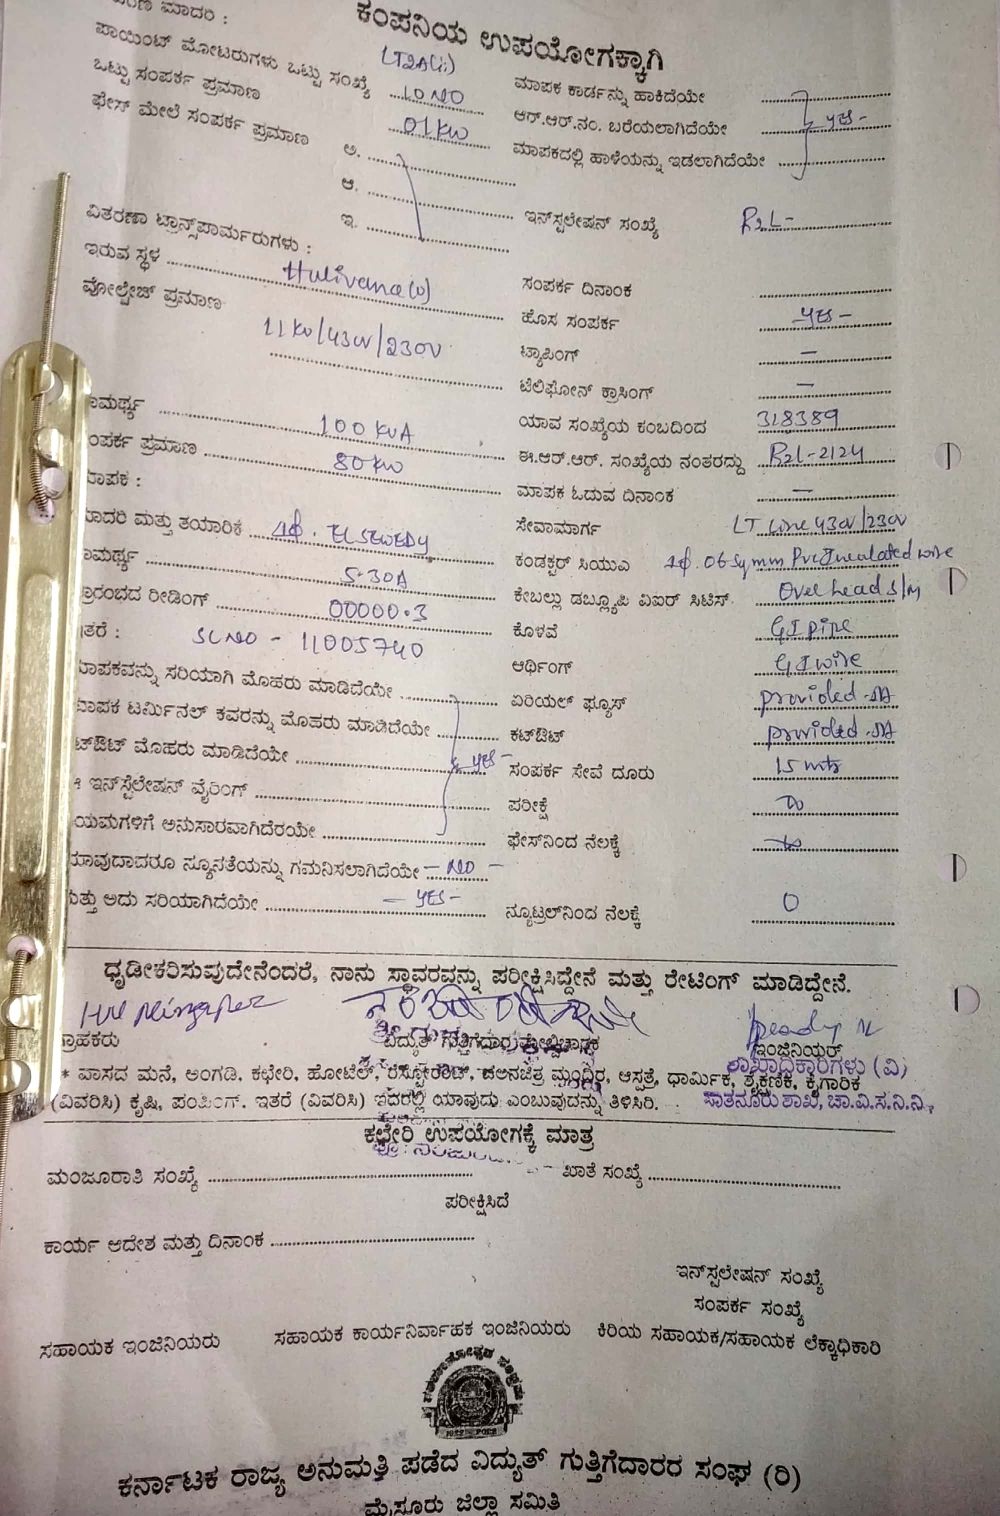 ಕಂಪನಿಯ ಉಪಯೋಗಕ್ಕಾಗಿ
ಮಾದರಿ : LT2A(ii)
ಪಾಯಿಂಟ್ ಮೋಟರುಗಳು ಒಟ್ಟು ಸಂಖ್ಯೆ 10 NO ಮಾಪಕ ಕಾರ್ಡನ್ನು ಹಾಕಿದೆಯೇ
ಒಟ್ಟು ಸಂಪರ್ಕ ಪ್ರಮಾಣ 01 KW ಆರ್.ಆರ್.ನಂ. ಬರೆಯಲಾಗಿದೆಯೇ yes -
ಫೇಸ್ ಮೇಲೆ ಸಂಪರ್ಕ ಪ್ರಮಾಣ ಅ. ಮಾಪಕದಲ್ಲಿ ಹಾಳೆಯನ್ನು ಇಡಲಾಗಿದೆಯೇ
ಆ.
ಇ. ಇನ್‌ಸ್ಪಲೇಷನ್ ಸಂಖ್ಯೆ R2L-
ವಿತರಣಾ ಟ್ರಾನ್ಸ್‌ಪಾರ್ಮರುಗಳು :
ಇರುವ ಸ್ಥಳ ಸಂಪರ್ಕ ದಿನಾಂಕ
ವೋಲ್ಟೇಜ್ ಪ್ರಮಾಣ 11 KV/430V/230V ಹೊಸ ಸಂಪರ್ಕ yes -
ಟ್ಯಾಪಿಂಗ್ —
ಟೆಲಿಫೋನ್ ಕ್ರಾಸಿಂಗ್ —
ಾಮರ್ಥ್ಯ 100 KVA ಯಾವ ಸಂಖ್ಯೆಯ ಕಂಬದಿಂದ 318389
ಂಪರ್ಕ ಪ್ರಮಾಣ 80 KW ಈ.ಆರ್.ಆರ್. ಸಂಖ್ಯೆಯ ನಂತರದ್ದು R2L-2124
ಾಪಕ : ಮಾಪಕ ಓದುವ ದಿನಾಂಕ —
ಾದರಿ ಮತ್ತು ತಯಾರಿಕೆ 1ϕ. ELSEWEDY ಸೇವಾಮಾರ್ಗ LT Line 430V/230V
ಾಮರ್ಥ್ಯ 5-30A ಕಂಡಕ್ಟರ್ ಸಿಯುಎ 1ϕ. 06 Sqmm Pvc Insulated wire
ಪ್ರಾರಂಭದ ರೀಡಿಂಗ್ 00000.3 ಕೇಬಲ್ಲು ಡಬ್ಲ್ಯೂಪಿ ವಿಐರ್ ಸಿಟಿಸ್ Over head S/M
ಇತರೆ : SL NO - 11005740 ಕೊಳವೆ GI pipe
ಾಪಕವನ್ನು ಸರಿಯಾಗಿ ಮೊಹರು ಮಾಡಿದೆಯೇ ಆರ್ಥಿಂಗ್ GI wire
ಾಪಕ ಟರ್ಮಿನಲ್ ಕವರನ್ನು ಮೊಹರು ಮಾಡಿದೆಯೇ ಏರಿಯಲ್ ಫ್ಯೂಸ್ provided -5A
ಟ್‌ಔಟ್ ಮೊಹರು ಮಾಡಿದೆಯೇ yes - ಕಟ್‌ಔಟ್ provided -5A
ಇನ್‌ಸ್ಪೆಲೇಷನ್ ವೈರಿಂಗ್ ಸಂಪರ್ಕ ಸೇವೆ ದೂರು 15 mts
ಯಮಗಳಿಗೆ ಅನುಸಾರವಾಗಿದೆರಯೇ ಪರೀಕ್ಷೆ
ಯಾವುದಾದರೂ ನ್ಯೂನತೆಯನ್ನು ಗಮನಿಸಲಾಗಿದೆಯೇ - NO - ಫೇಸ್‌ನಿಂದ ನೆಲಕ್ಕೆ
ಮತ್ತು ಅದು ಸರಿಯಾಗಿದೆಯೇ - yes - ನ್ಯೂಟ್ರಲ್‌ನಿಂದ ನೆಲಕ್ಕೆ 0
ಧೃಡೀಕರಿಸುವುದೇನೆಂದರೆ, ನಾನು ಸ್ಥಾವರವನ್ನು ಪರೀಕ್ಷಿಸಿದ್ದೇನೆ ಮತ್ತು ರೇಟಿಂಗ್ ಮಾಡಿದ್ದೇನೆ.
ಗ್ರಾಹಕರು ವಿದ್ಯುತ್ ಗುತ್ತಿಗೆದಾರ ಇಂಜಿನಿಯರ್
ಶಾಖಾಧಿಕಾರಿಗಳು (ವಿ)
* ವಾಸದ ಮನೆ, ಅಂಗಡಿ, ಕಛೇರಿ, ಹೋಟೆಲ್, ರೆಸ್ಟೋರೆಂಟ್, ಚಲನಚಿತ್ರ ಮಂದಿರ, ಆಸ್ಪತ್ರೆ, ಧಾರ್ಮಿಕ, ಶೈಕ್ಷಣಿಕ, ಕೈಗಾರಿಕೆ
(ವಿವರಿಸಿ) ಕೃಷಿ, ಪಂಪಿಂಗ್. ಇತರೆ (ವಿವರಿಸಿ) ಇದರಲ್ಲಿ ಯಾವುದು ಎಂಬುವುದನ್ನು ತಿಳಿಸಿರಿ. ಸಾತನೂರು ಶಾಖೆ, ಚಾ.ವಿ.ಸ.ನಿ.ನಿ.,
ಕಛೇರಿ ಉಪಯೋಗಕ್ಕೆ ಮಾತ್ರ
ಮಂಜೂರಾತಿ ಸಂಖ್ಯೆ ಖಾತೆ ಸಂಖ್ಯೆ
ಪರೀಕ್ಷಿಸಿದೆ
ಕಾರ್ಯ ಆದೇಶ ಮತ್ತು ದಿನಾಂಕ
ಇನ್‌ಸ್ಪಲೇಷನ್ ಸಂಖ್ಯೆ
ಸಂಪರ್ಕ ಸಂಖ್ಯೆ
ಸಹಾಯಕ ಇಂಜಿನಿಯರು ಸಹಾಯಕ ಕಾರ್ಯನಿರ್ವಾಹಕ ಇಂಜಿನಿಯರು ಕಿರಿಯ ಸಹಾಯಕ/ಸಹಾಯಕ ಲೆಕ್ಕಾಧಿಕಾರಿ
ಕರ್ನಾಟಕ ರಾಜ್ಯ ಅನುಮತಿ ಪಡೆದ ವಿದ್ಯುತ್ ಗುತ್ತಿಗೆದಾರರ ಸಂಘ (ರಿ)
ಮೈಸೂರು ಜಿಲ್ಲಾ ಸಮಿತಿ